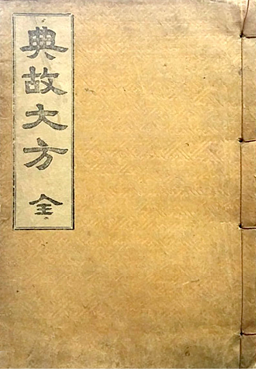 典故大方 全